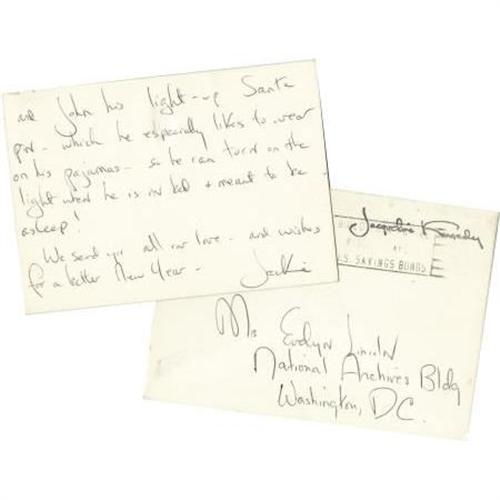 and John his light-up Santa
pin - which he especially likes to wear
on his pajamas - so he can turn on the
light when he is in bed & meant to be -
asleep!
We send you all our love - and wishes
for a better New Year -
Jackie
Jacqueline Kennedy
U.S. SAVINGS BONDS
Mrs Evelyn Lincoln
National Archives Bldg
Washington, D.C.